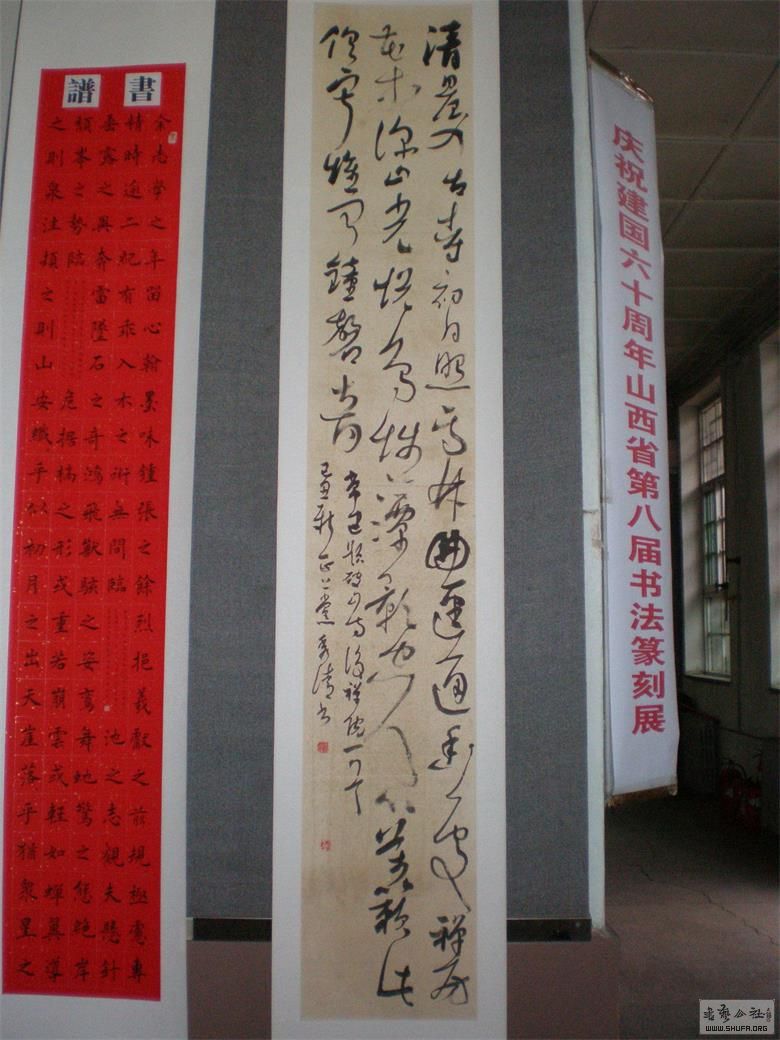 書譜
余志學之年留心翰墨味鍾張之餘烈挹羲獻之前規極慮專
精時逾二紀有乖入木之術無間臨池之志觀夫懸針
垂露之異奔雷墜石之奇鴻飛獸駭之姿鸞舞蛇驚之態絕岸
頹峯之勢臨危據槁之形或重若崩雲或輕如蟬翼導
之則泉注頓之則山安纖乎似初月之出天崖落乎猶眾星之
清晨入古寺初日照高林曲徑通幽處禪房
花木深山光悅鳥性潭影空人心萬籟此
俱寂惟聞鐘磬音
常建題破山寺後禪院一首
己丑新正上黨秀清书
庆祝建国六十周年山西省第八届书法篆刻展
书艺公社
WWW.SHUFA.ORG